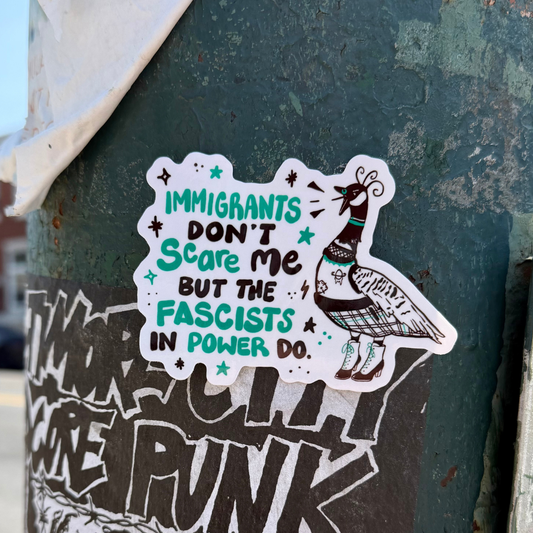 IMMIGRANTS
DON'T
Scare Me
BUT THE
FASCISTS
IN POWER DO.
CITY
CORE PUNK